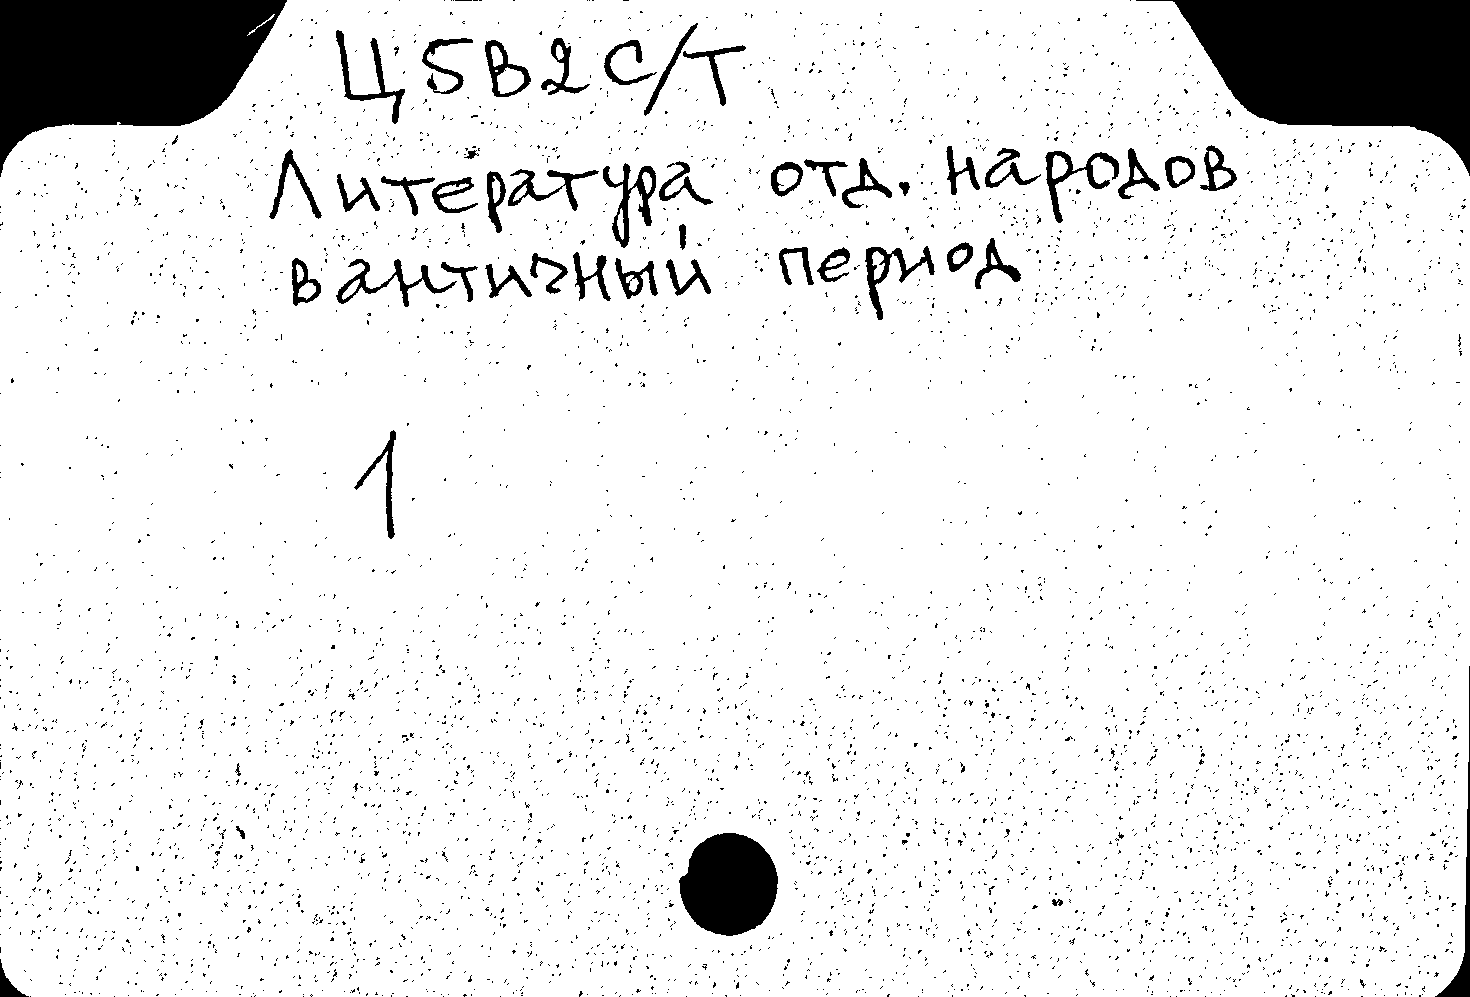 Ц5В2С/Т
Литература отд. народов
в античный период
1